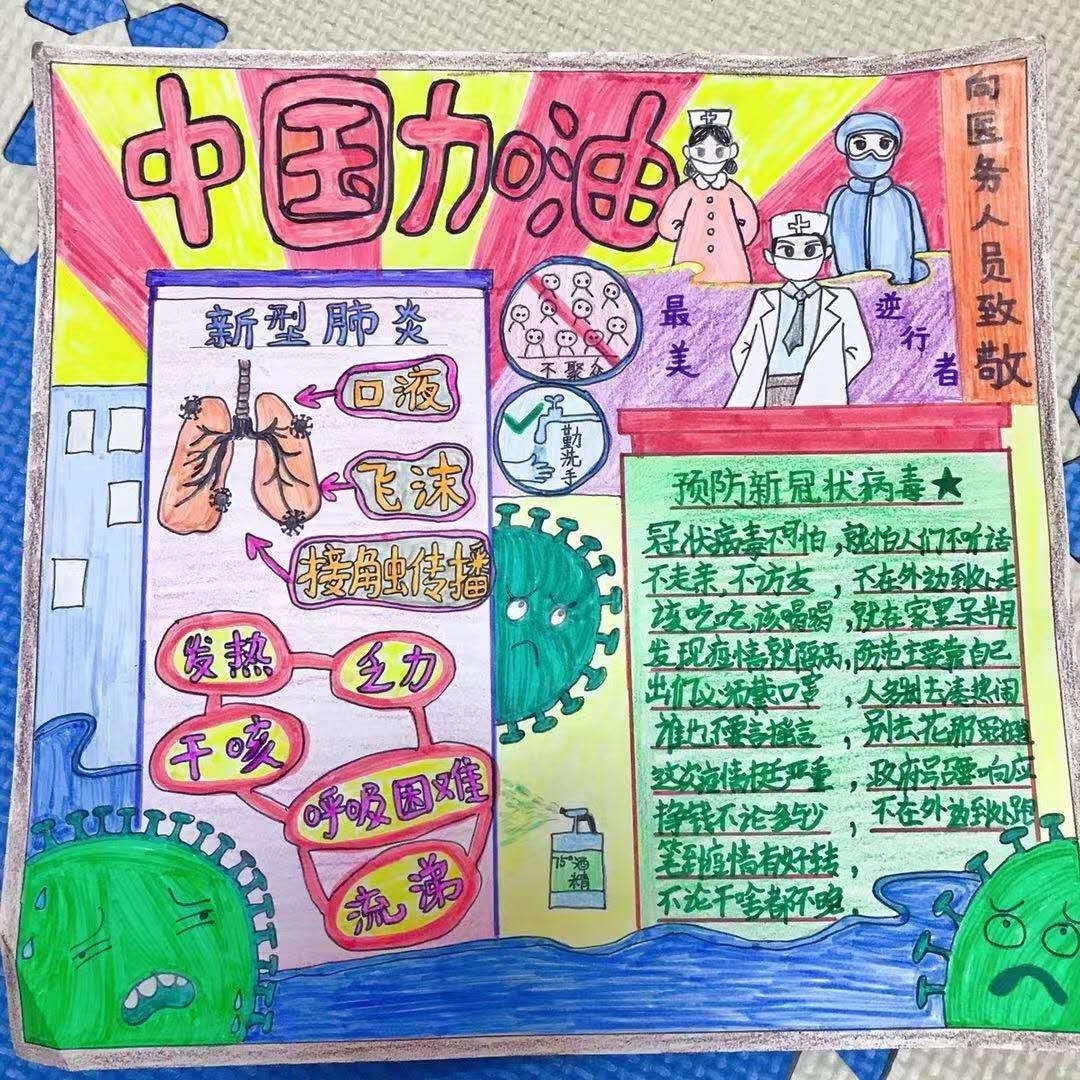 中国加油
向医务人员致敬
最美
逆行者
新型肺炎
口液
飞沫
接角虫传播
发热
乏力
干咳
呼吸困难
流涕
不聚众
勤洗手
75°酒精
预防新冠状病毒★
冠状病毒不可怕，就怕人们不听话
不走亲、不访友，不在外边到处走
该吃吃，该喝喝，就在家里呆半月
发现疫情就隔，防范主要靠自己
出们必须戴口罩，人多别去凑热闹
谣言，别去花那
这次疫情挺严重，政府号召要响应
挣钱不论多与少，不在外边到处跑
等到疫情有好转，
不论干啥都不晚．